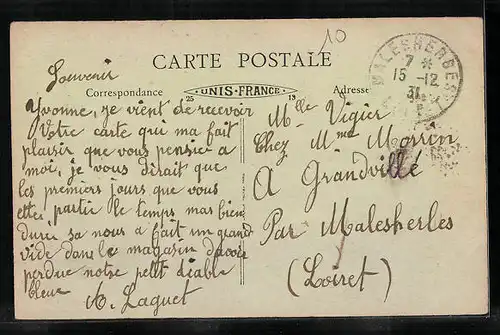 10
CARTE POSTALE
MALESHERBES
7 *
15 -12
31
Souvenir
Correspondance
UNIS-FRANCE
25
13
Adresse
Yvonne, je vient de recevoir
Votre carte qui ma fait
plaisir que vous pensie a
moi, je vous dirait que
les premiers jours que vous
ette, partie le temps mas bien
dure sa nous a fait un grand
vide dans le magasin davoir
perdue notre petit diable
bleue
A. Laguet
Mlle Vigier
Chez Mme
A Grandville
Par Malesherbes
(Loiret)